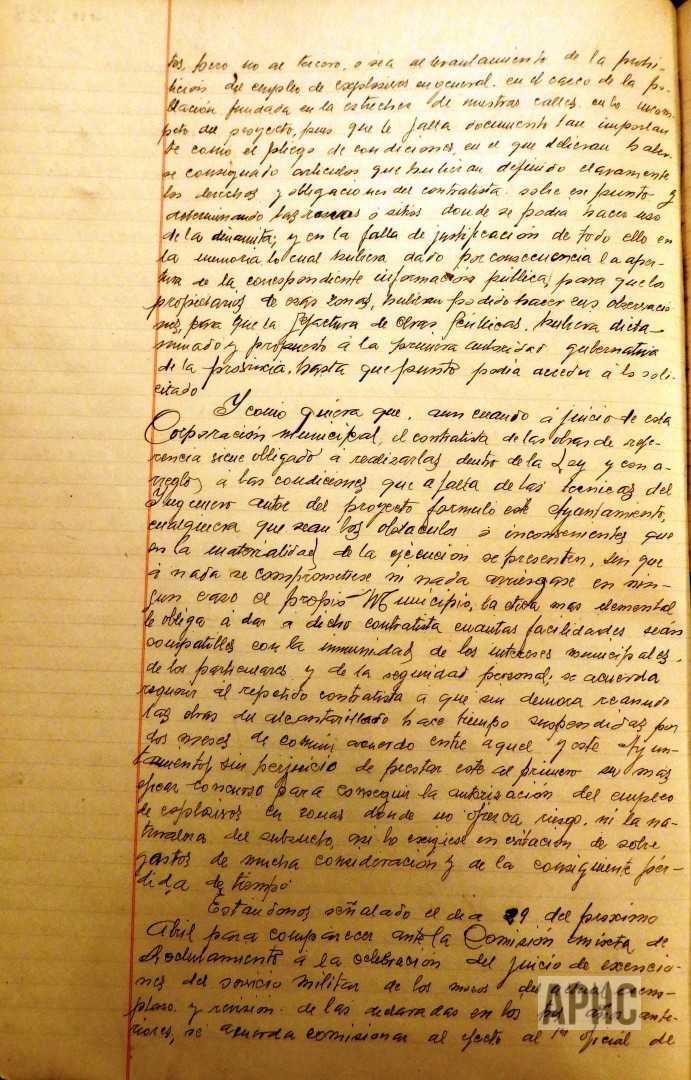 tos, pero no al tercero, o sea al levantamiento de la prohi-
bición del empleo de explosivos en general en el casco de la po-
blación fundada en la estrechez de nuestras calles, en lo incom-
pleto del proyecto, pues que le falta documento tan importan
te como el pliego de condiciones, en el que debieran haber
se consignado articulos que hubieran definido claramente
los derechos y obligaciones del contratista sobre ese punto y
determinando las zonas ó sitios donde se podia hacer uso
de la dinamita; y en la falta de justificación de todo ello en
la memoria lo cual hubiera dado por consecuencia la aper-
tura de la correspondiente información pública, para que los
propietarios de esas zonas, hubieran podido hacer sus observacio
nes, para que la Jefactura de Obras Públicas, hubiera dicta
minado y propuesto á la primera autoridad gubernativa
de la provincia, hasta que punto podia acceder á lo soli-
citado
Y como quiera que, aun cuando á juicio de esta
Corporación municipal, el contratista de las obras de refe-
rencia viene obligado á realizarlas dentro de la Ley y con a-
rreglo á las condiciones que a falta de las tecnicas del
Ingeniero autor del proyecto formuló este Ayuntamiento,
cualquiera que sean los obstaculos ó inconvenientes que
en la materialidad de la ejecución se presenten, sin que
á nada se comprometiese ni nada arriesgase en nin-
gun caso el propio Municipio, la etica mas elemental
le obliga á dar a dicho contratista cuantas facilidades sean
compatibles con la inmunidad de los intereses municipales,
de los particulares y de la seguridad personal; se acuerda
requerir al repetido contratista a que sin demora reanude
las obras del alcantarillado hace tiempo suspendidas por
dos meses de comun acuerdo entre aquel y este Ayun-
tamiento, sin perjuicio de prestar este al primero su mas
eficaz concurso para conseguir la autorización del empleo
de explosivos en zonas donde no ofrezca riesgo, ni la na-
turaleza del subsuelo, asi lo exigiese en evitación de sobre
gastos de mucha consideración y de la consiguiente pér-
dida de tiempo.
Estandonos señalado el dia 29 del proximo
Abril para comparecer ante la Comisión mixta de
Reclutamiento á la celebración del juicio de exencio-
nes del servicio militar de los mozos del actual reem-
plazo y revisión de las declaradas en los años ante-
riores, se acuerda comisionar al efecto al 1º oficial de
APHC